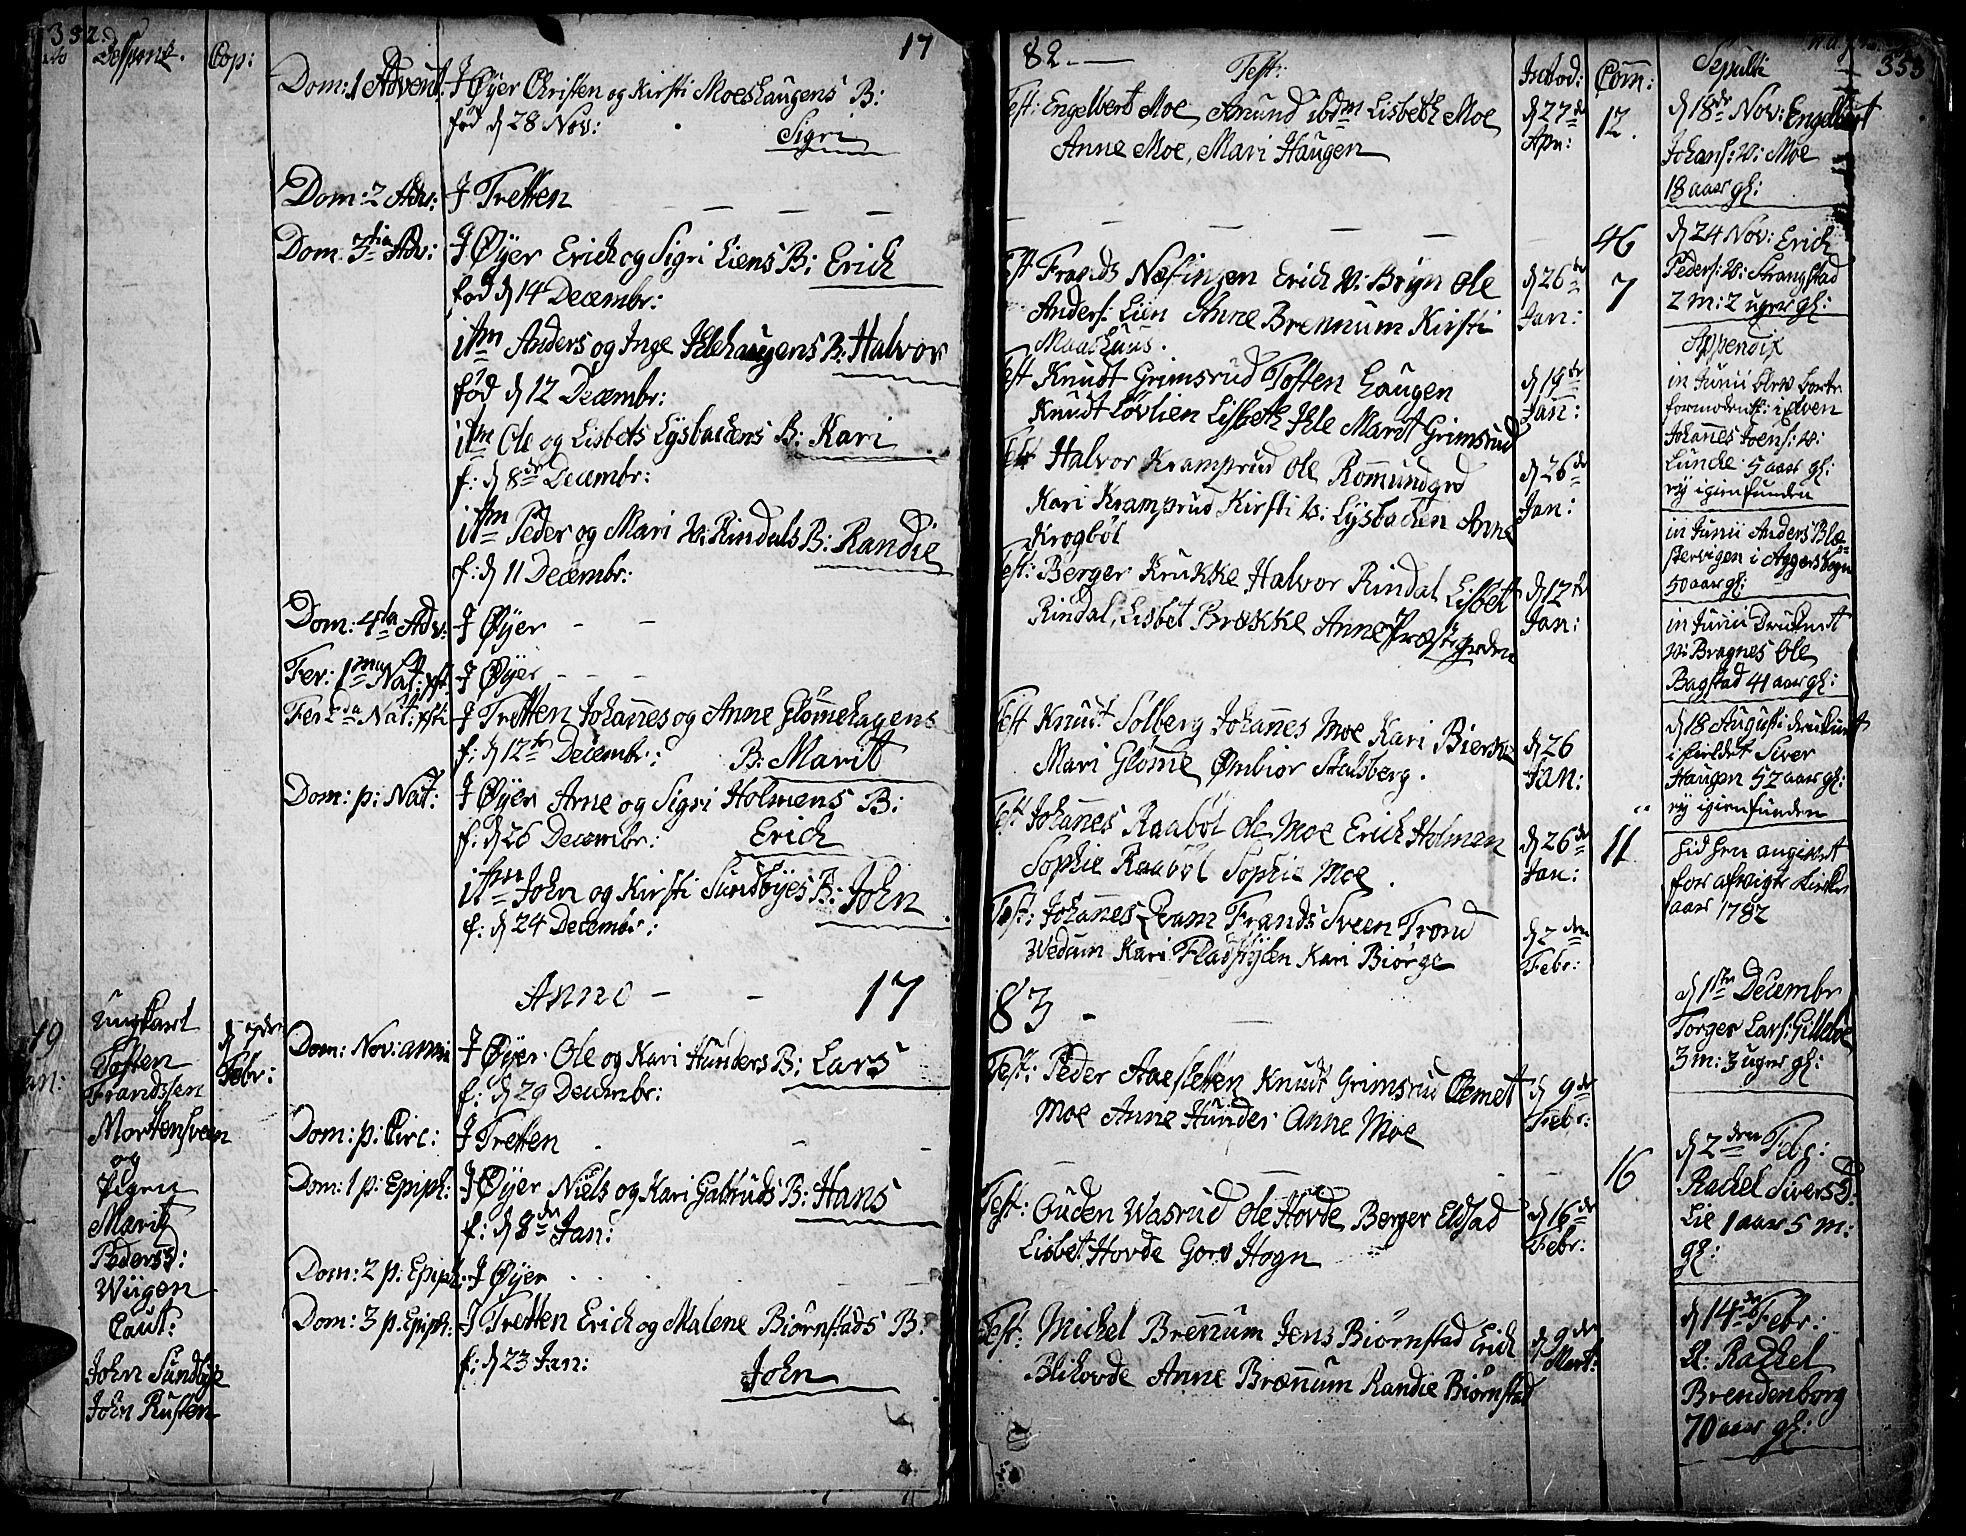 332.
Despons.
Cop:
17
Dom: 1 Advent:
J Øyer Christen og Kirsti Moeshaugens B:
fød d 28 Nov:
Sigri
Dom: 2 Adv:
J Tretten
Dom: 3tia Adv:
J Øyer Erich og Sigri Liens B: Erich
fød d 14 Decembr:
itm Anders og Inge Ihlehaugens B: Halvor
fød d 12 Decembr:
itm Ole og Lisbets Lysbackens B: Kari
f: d 8de Decembr:
itm Peder og Mari W: Rindals B: Randie
f: d 11 Decembr:
Dom: 4ta Adv:
J Øyer
Fer: 1ma Nat: xsti
J Øyer
Fer 2da Nat: xsti
J Tretten Johannes og Anne Glømmehagens
f: d 12te Decembr:
B: Marit
Dom: p: Nat:
J Øyer Arne og Sigri Holmens B:
f: d 26 Decembr:
Erich
itm John og Kirsti Sundbyes B: John
f: d 24 Decembr:
Anno - - 17
19
Jan:
Ungkarl
Tosten
Frandssen
Mortensveen
og
Pigen
Marit
Pedersd:
Wiigen
Caut:
John Sundbye
John Rusten
Febr:
Dom: Nov: anni
J Øyer Ole og Kari Hunders B: Lars
f: d 29 Decembr:
Dom: p: Circ:
J Tretten
Dom: 1 p: Epiph:
J Øyer Niels og Kari Galtruds B: Hans
f: d 8de Jan:
Dom: 2 p: Epiph:
J Øyer
Dom: 3 p: Epiph:
J Tretten Erich og Malene Biørnstads B:
f: d 23 Jan:
John
82.
Test:
Introd:
Com:
Sepulti
353
Test: Engelbert Moe, Amund ibdm Lisbeth Moe
Anne Moe, Mari Haugen
d 27de
Apr:
12.
46
Test Frands Næfingen Erich W: Bryn Ole
Anders: Lien Anne Brennum Kirsti
Maashuus.
d 26de
Jan:
7
Test Knudt Grimsrud Tosten Haugen
Knudt Løvlien Lisbeth Ihle Mardt Grimsrud
d 19de
Jan:
Test Halvor Kramprud Ole Rommundgrd
Kari Kramprud Kirsti W: Lysbacken Anne
Krogbøl
d 26de
Jan:
Test: Berger Krukke Halvor Rindal Lisbet
Rindal, Lisbet Brække Anne Præstegrden
d 12te
Jan:
Test Knudt Solberg Johannes Moe Kari Bierke
Mari Glømme Ømbior Stalsberg.
d 26
Jan:
Test Johannes Raabøl Ole Moe Erich Holmen
Sophie Raabøl Sophie Moe.
d 26de
Jan:
11
Test: Johannes Qvam Frands Sveen Trond
Wedum Kari Fladstyen Kari Biørge
d 2den
Febr:
83 -
Test: Peder Aaesletten Knudt Grimsrud Clemet
Moe Anne Hunder Anne Moe
d 9de
Febr:
16
Test: Guden Wasrud Ole Hovde Berger Eldstad
Lisbet Hovde Goro Hogn
d 16de
Febr:
Test: Michel Brennum Jens Biørnstad Erich
Blihovde Anne Brennum Randie Biørnstad
d 9de
Mart:
d 18de Nov: Engelbert
Johans: W: Moe
18 aar gl:
d 24 Nov: Erich
Peders: W: Strangstad
2 m: 2 uger gl:
Appendix
in Junii blev borte
formodentl: i Elven
Johannes Joens: W:
Lunche 5 aar gl:
ey igienfunden
in Junii Anders Blæ-
stervigen i Aggers Sogn
50 aar gl:
in Junii Druknet
W: Bragnes Ole
Bagstad 41 aar gl:
d 18 Augusti druknet
Siver
Haugen 52 aar gl:
ey igienfunden
hid hen angivet
for afvigte Kirke
aar 1782
d 1ste Decembr
Torger Lars: Gilleboe
3 m: 3 uger gl:
d 2den Febr:
Rachel Sivers D:
Lie 1 aar 5 m:
gl:
d 14de Febr:
El: Rachel
Brendenborg
70 aar gl: